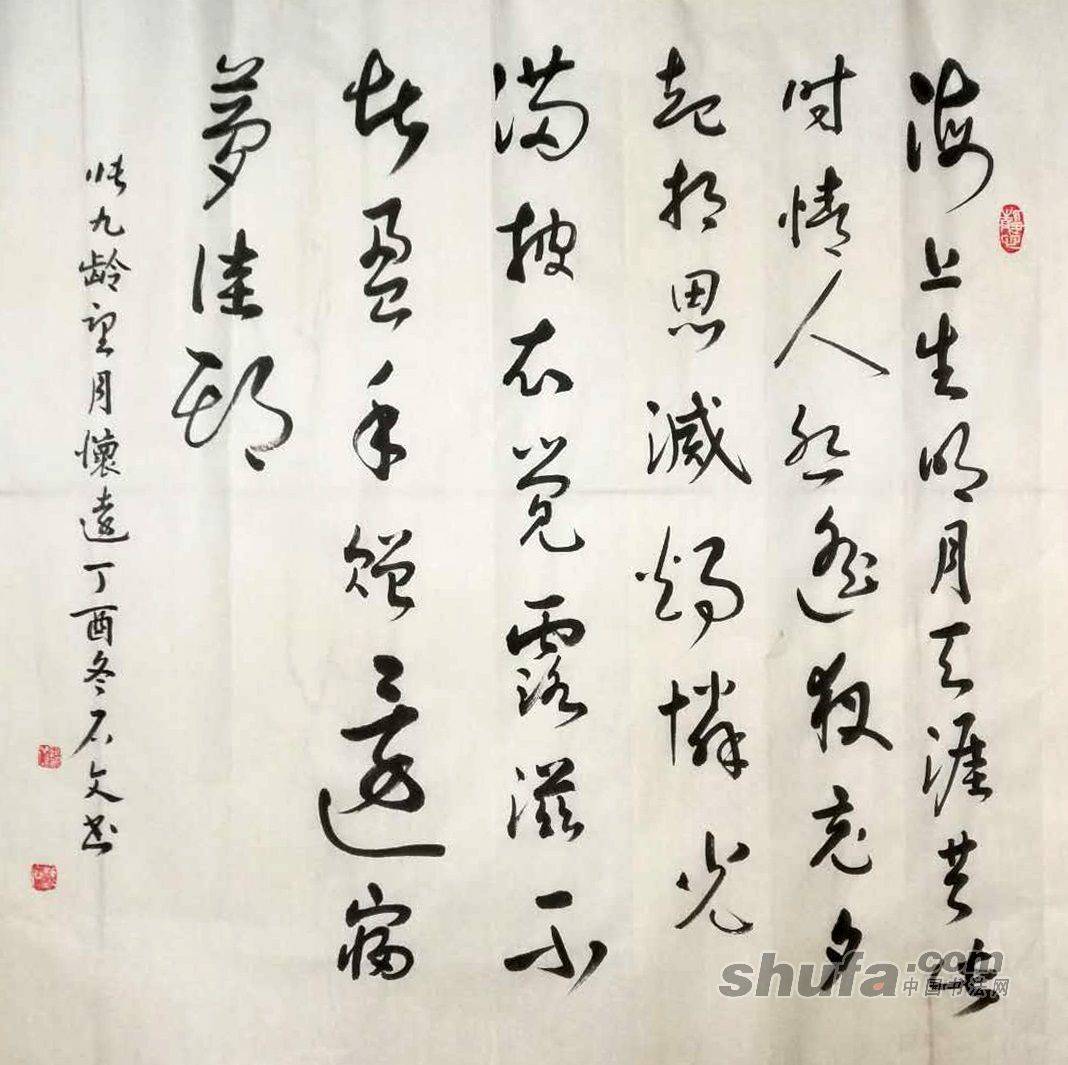 海上生明月天涯共此
时情人怨遥夜竟夕
起相思滅燭憐光
满披衣覺露滋不
堪盈手贈還寢
夢佳期
张九龄望月懷遠丁酉冬石文书
shufa.com
中国书法网